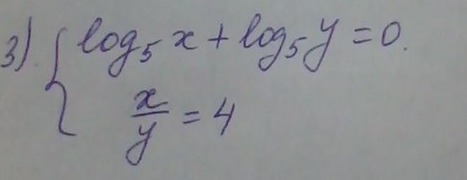 3) { log₅ x + log₅ y = 0.
x/y = 4